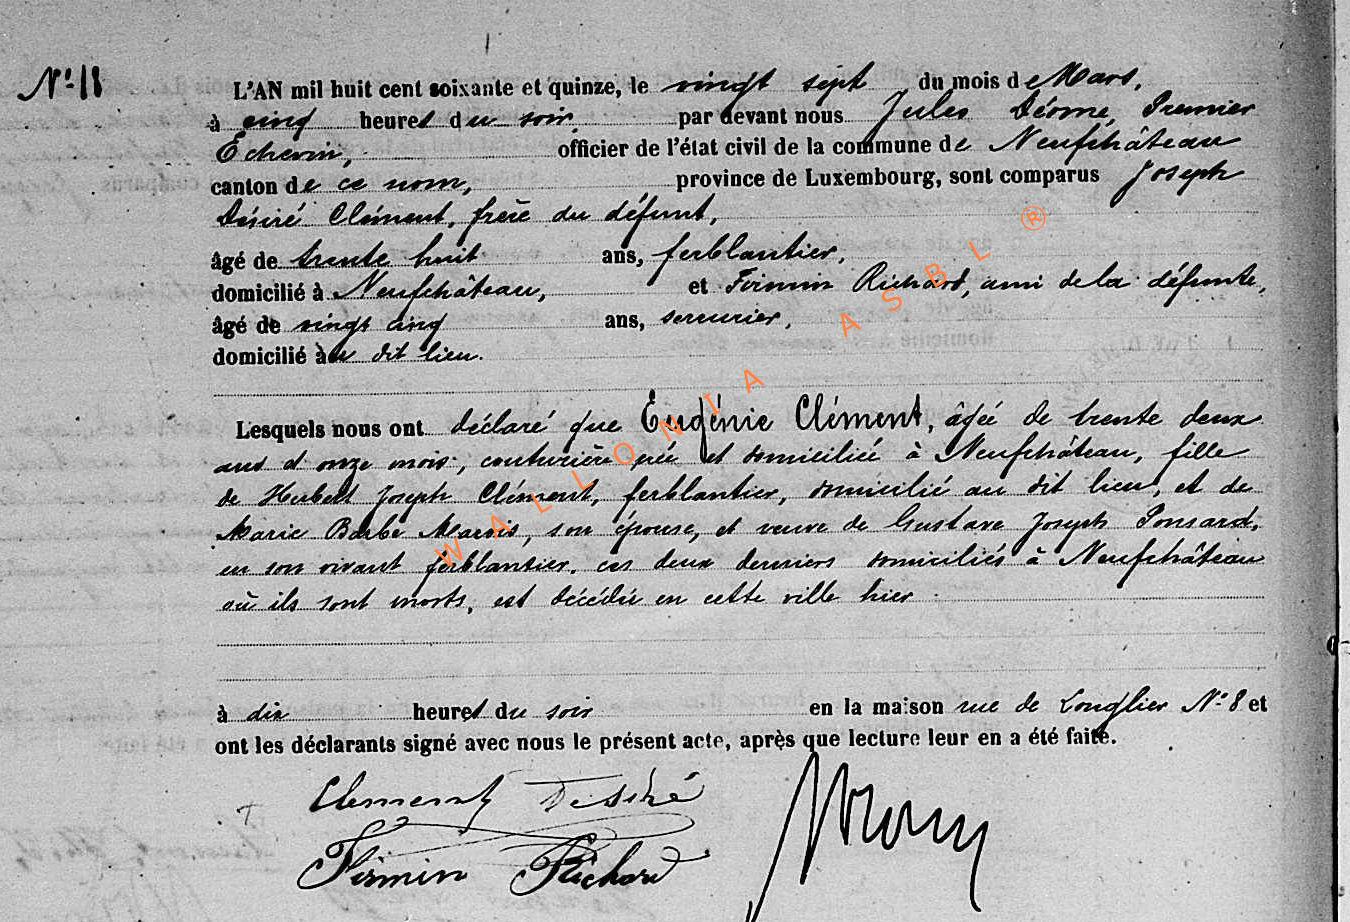 N° 18
L'AN mil huit cent soixante et quinze, le vingt sept du mois de Mars,
à cinq heures du soir, par devant nous Jules Dérome, Premier
Echevin, officier de l'état civil de la commune de Neufchâteau
canton de ce nom, province de Luxembourg, sont comparus Joseph
Désiré Clément, frère du défunt,
âgé de trente huit ans, ferblantier,
domicilié à Neufchâteau, et Firmin Richard, ami de la défunte,
âgé de vingt cinq ans, serrurier,
domicilié au dit lieu.
Lesquels nous ont déclaré que Eugénie Clément, âgée de trente deux
ans et onze mois, couturière née et domiciliée à Neufchâteau, fille
de Hubert Joseph Clément, ferblantier, domicilié au dit lieu, et de
Marie Barbe, son épouse, et veuve de Gustave Joseph Ponsard,
en son vivant ferblantier, ces deux derniers domiciliés à Neufchâteau
où ils sont morts, est décédée en cette ville hier
à dix heures du soir en la maison rue de Longlier N° 8 et
ont les déclarants signé avec nous le présent acte, après que lecture leur en a été faite.
Clement Desiré
Firmin Richard
WALLONIA ASBL ®